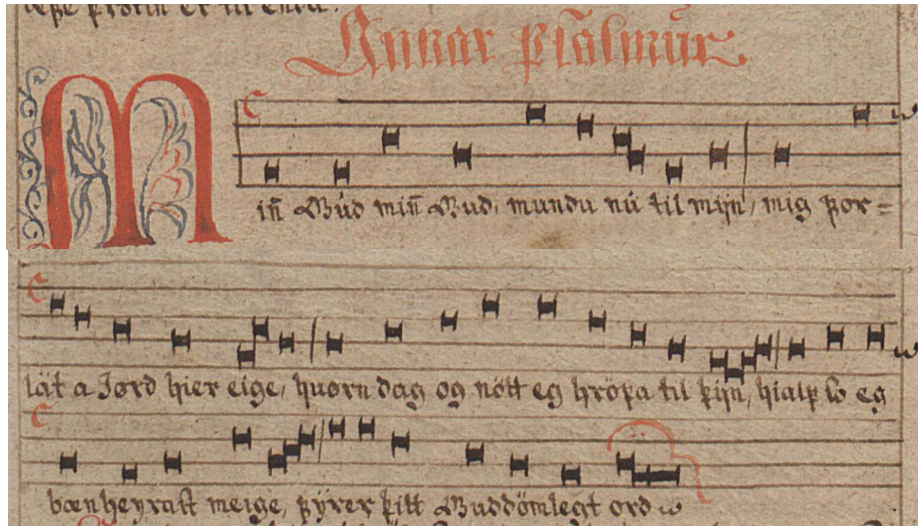 Annar psalmur
Min̄ Gud min̄ Gud, mundu nu til mijn, mig for=
lät a Jørd hier eige, huørn dag og nött eg hröpa til þijn, hialp so eg
bænheyraſt meige, fyrer þitt Guddömlegt ord